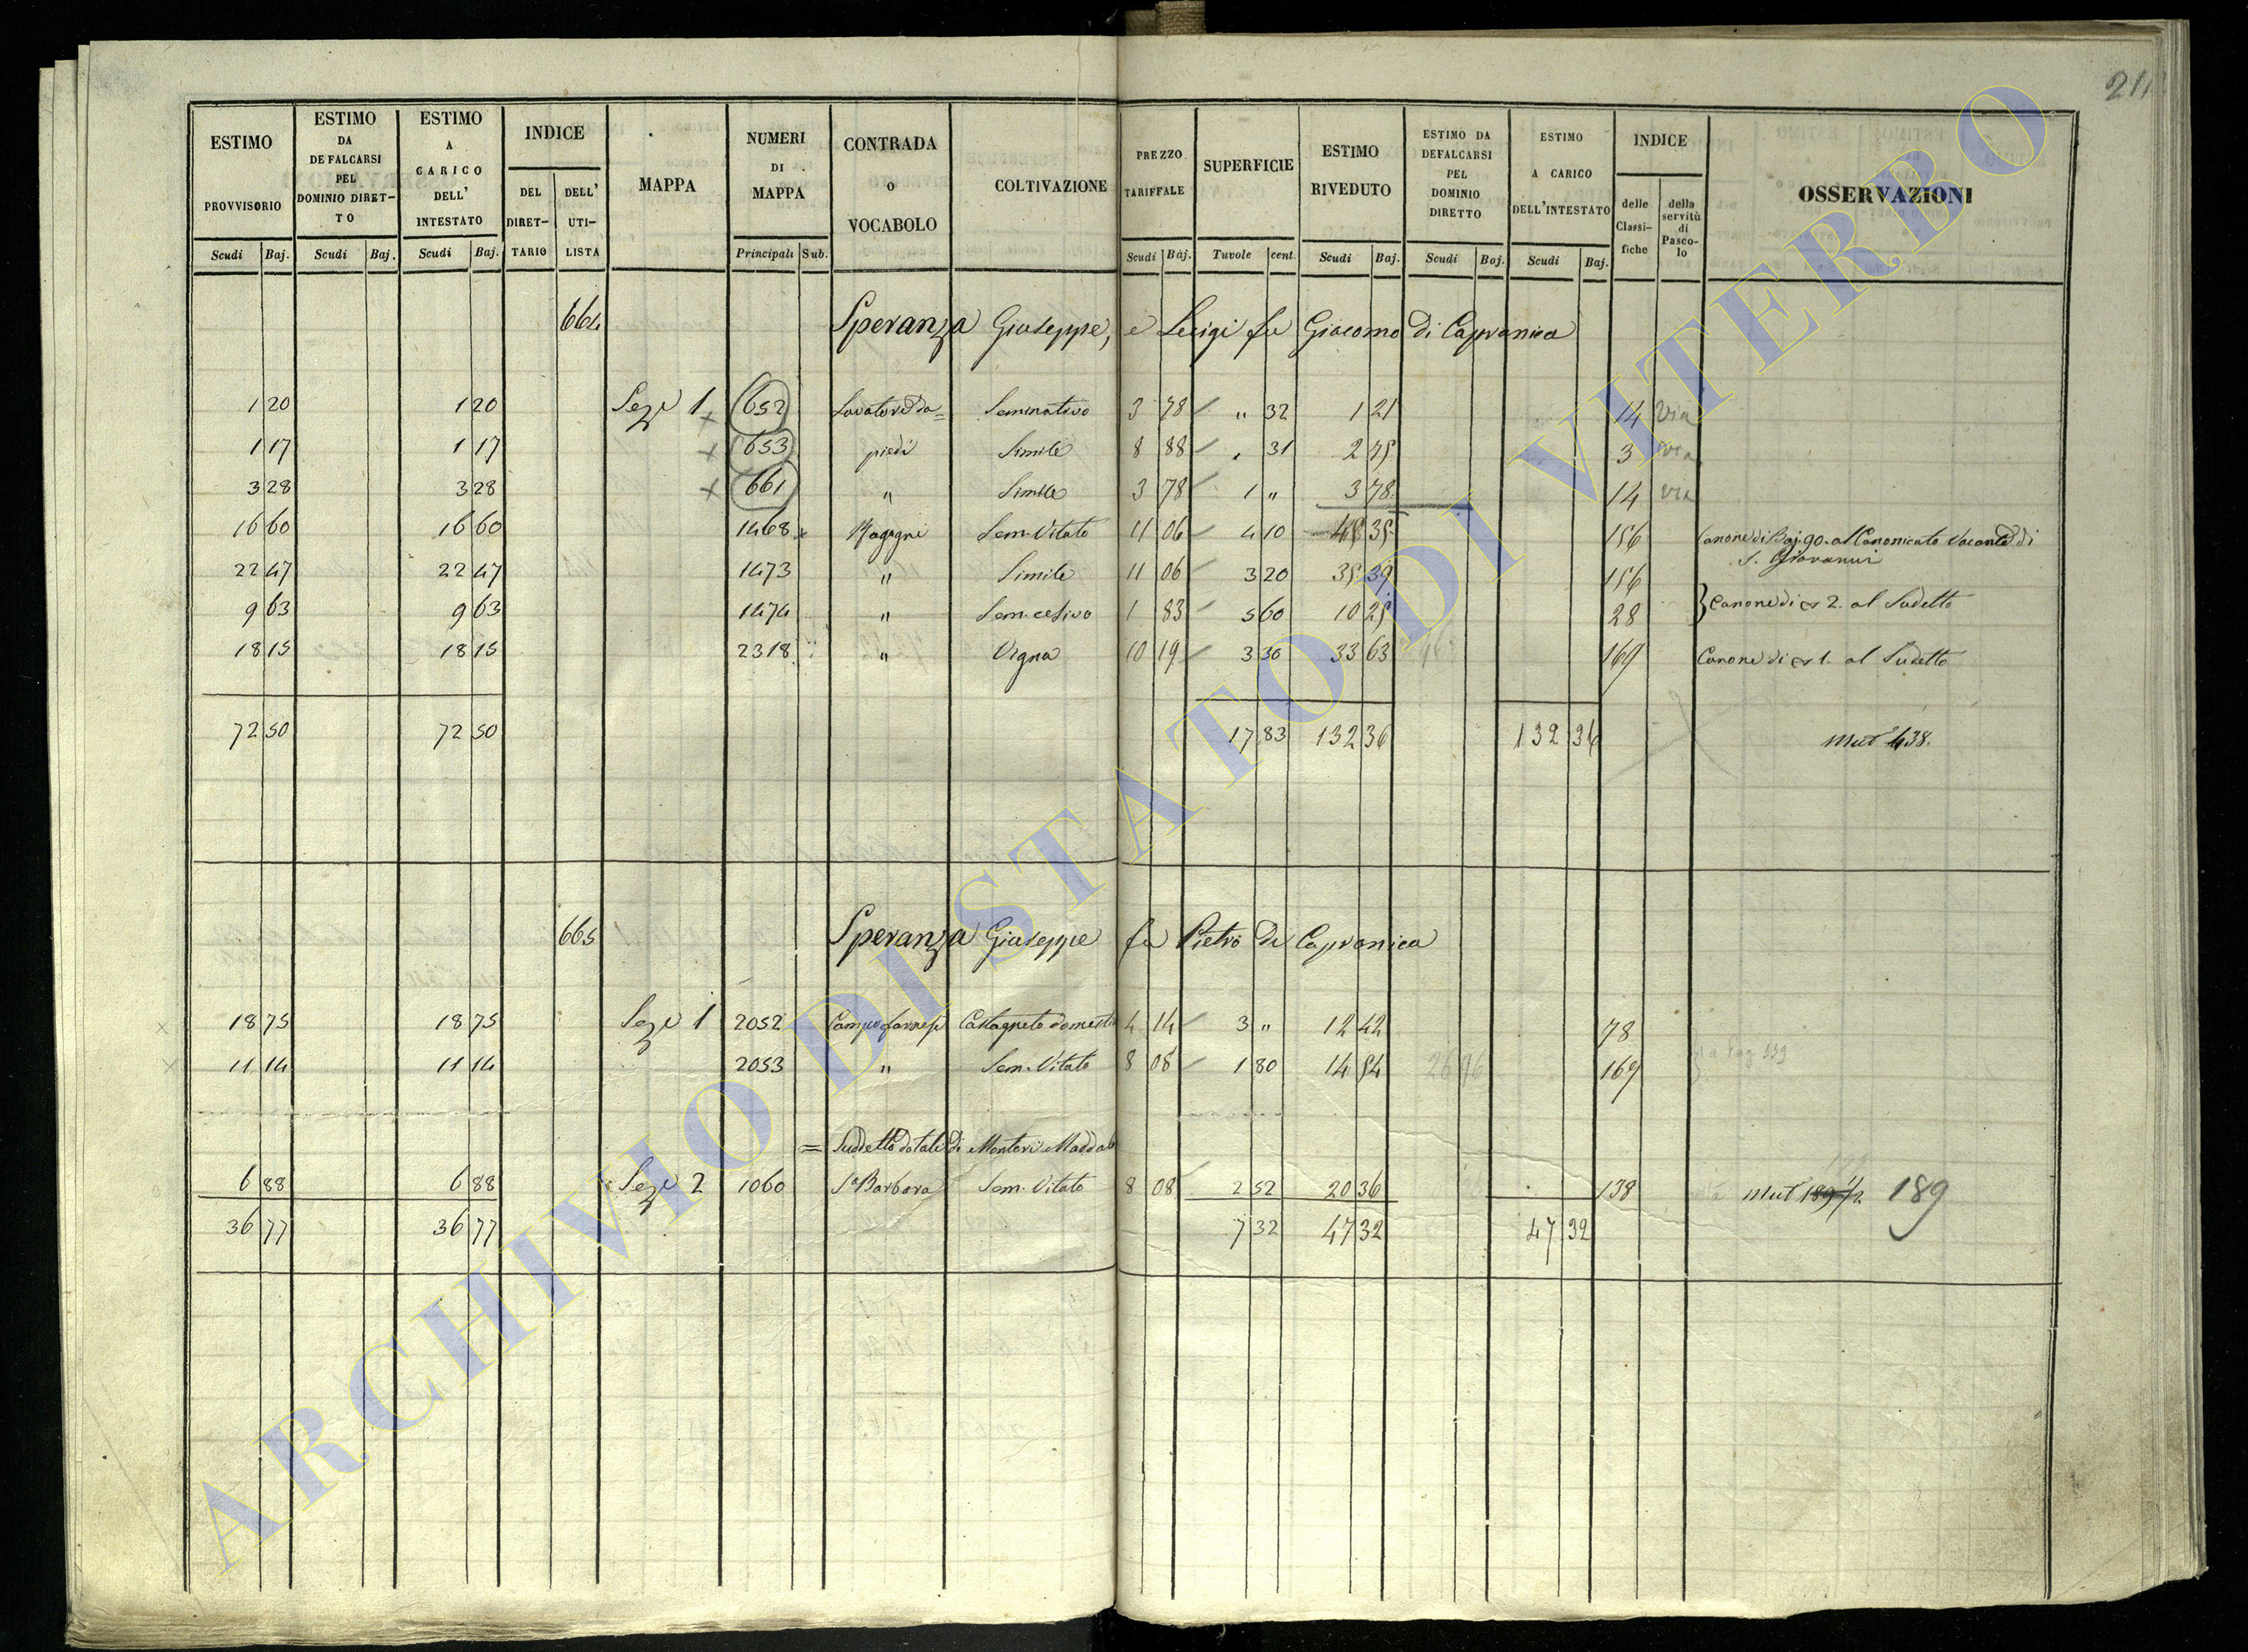 211
ESTIMO PROVVISORIO Scudi Baj.
ESTIMO DA DEFALCARSI PEL DOMINIO DIRET-TO Scudi Baj.
ESTIMO A CARICO DELL' INTESTATO Scudi Baj.
INDICE DEL DIRET-TARIO DELL' UTI-LISTA
MAPPA
NUMERI DI MAPPA Principali Sub.
CONTRADA O VOCABOLO
COLTIVAZIONE
PREZZO TARIFFALE Scudi Baj.
SUPERFICIE Tavole cent.
ESTIMO RIVEDUTO Scudi Baj.
ESTIMO DA DEFALCARSI PEL DOMINIO DIRETTO Scudi Baj.
ESTIMO A CARICO DELL'INTESTATO Scudi Baj.
INDICE delle Classi-fiche della servitù di Pasco-lo
OSSERVAZIONI
664 Speranza Giuseppe, e Luigi fu Giacomo di Capranica
1 20 1 20 Sezе 1 652 Lavatore da= Seminativo 3 78 " 32 1 21 14 Via
1 17 1 17 653 piedi Simile 8 88 " 31 2 75 3 via
3 28 3 28 661 " Simile 3 78 1 " 3 78 14 via
16 60 16 60 1468 Sem. Vitato 11 06 4 10 45 35 156 Canone di Baj. 90. al Canonicato Vacante di
S. Giovanni
22 47 22 47 1473 " Simile 11 06 3 20 35 39 156
9 63 9 63 1474 " Sem. cesivo 1 83 5 60 10 25 28 } Canone di 2. al Sudetto
18 15 18 15 2318 " Vigna 10 19 3 30 33 63 169 Canone di 1. al Sudetto
72 50 72 50 17 83 132 36 132 36 Mut 438.
665 Speranza Giuseppe fu Pietro di Capranica
18 75 18 75 Seze 1 2052 Campo farnese Castagneto domestico 4 14 3 " 12 42 78
11 14 11 14 2053 " Sem. Vitato 8 08 1 80 14 54 26 96 169 a Pag 339
= Suddetto dotali di Montori Maddal
6 88 6 88 Seze 2 1060 Sa Barbara Sem. Vitato 8 08 2 52 20 36 138 Mut 189 1/2 189
36 77 36 77 7 32 47 32 47 32
ARCHIVIO DI STATO DI VITERBO